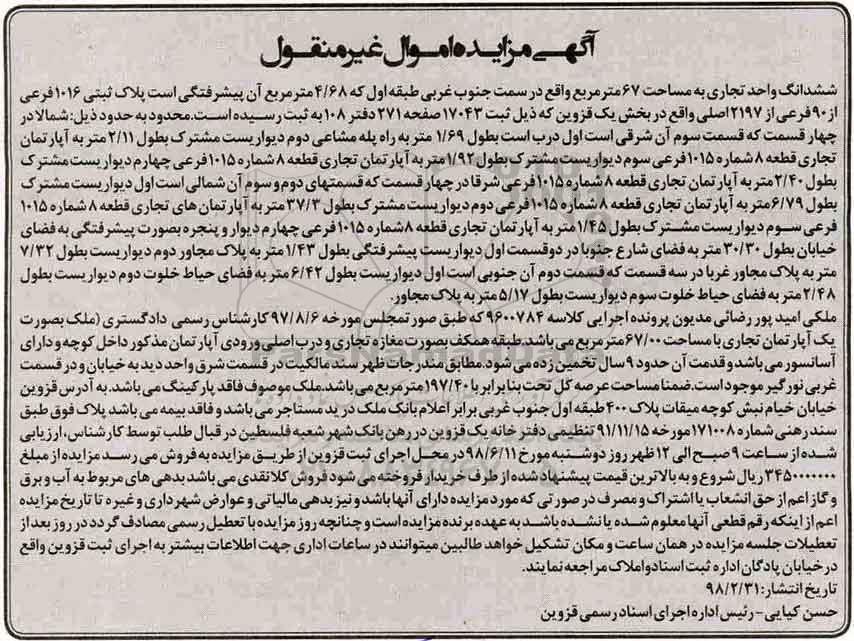 آگهی مزایده اموال غیر منقول
ششدانگ واحد تجاری به مساحت ۶۷ متر مربع واقع در سمت جنوب غربی طبقه اول که ۴/۶۸ متر مربع آن پیشرفتگی است پلاک ثبتی ۱۰۱۶ فرعی
از ۹۰ فرعی از ۲۱۹۷ اصلی واقع در بخش یک قزوین که ذیل ثبت ۱۷۰۴۳ صفحه ۲۷۱ دفتر ۱۰۸ به ثبت رسیده است. محدود به حدود ذیل: شمالا در
چهار قسمت که قسمت سوم آن شرقی است اول درب است بطول ۱/۶۹ متر به راه پله مشاعی دوم دیواریست مشترک بطول ۲/۱۱ متر به آپارتمان
تجاری قطعه ۸ شماره ۱۰۱۵ فرعی سوم دیواریست مشترک بطول ۱/۹۲ متر به آپارتمان تجاری قطعه ۸ شماره ۱۰۱۵ فرعی چهارم دیواریست مشترک
بطول ۲/۴۰ متر به آپارتمان تجاری قطعه ۸ شماره ۱۰۱۵ فرعی شرقا در چهار قسمت که قسمتهای دوم و سوم آن شمالی است اول دیواریست مشترک
بطول ۶/۷۹ متر به آپارتمان تجاری قطعه ۸ شماره ۱۰۱۵ فرعی دوم دیواریست مشترک بطول ۳۷/۳ متر به آپارتمان های تجاری قطعه ۸ شماره ۱۰۱۵
فرعی سوم دیواریست مشترک بطول ۱/۴۵ متر به آپارتمان تجاری قطعه ۸ شماره ۱۰۱۵ فرعی چهارم دیوار و پنجره بصورت پیشرفتگی به فضای
خیابان بطول ۳۰/۳۰ متر به فضای شارع جنوبا در دو قسمت اول دیواریست پیشرفتگی بطول ۱/۴۳ متر به پلاک مجاور دوم دیواریست بطول ۷/۳۲
متر به پلاک مجاور غربا در سه قسمت که قسمت دوم آن جنوبی است اول دیواریست بطول ۶/۴۲ متر به فضای حیاط خلوت دوم دیواریست بطول
۲/۴۸ متر به فضای حیاط خلوت سوم دیواریست بطول ۵/۱۷ متر به پلاک مجاور.
ملکی امید پور رضائی مدیون پرونده اجرایی کلاسه ۹۶۰۰۷۸۴ که طبق صورتمجلس مورخه ۹۷/۸/۶ کارشناس رسمی دادگستری (ملک بصورت
یک آپارتمان تجاری با مساحت ۶۷/۰۰ متر مربع می باشد. طبقه همکف بصورت مغازه تجاری و درب اصلی ورودی آپارتمان مذکور داخل کوچه و دارای
آسانسور می باشد و قدمت آن حدود ۹ سال تخمین زده می شود. مطابق مندرجات ظهر سند مالکیت در قسمت شرق واحد دید به خیابان و در قسمت
غربی نورگیر موجود است. ضمنا مساحت عرصه کل تحت بنا برابر با ۱۹۷/۴۰ متر مربع می باشد. ملک موصوف فاقد پارکینگ می باشد. به آدرس قزوین
خیابان خیام نبش کوچه میقات پلاک ۴۰۰ طبقه اول جنوب غربی برابر اعلام بانک ملک در ید مستاجر می باشد و فاقد بیمه می باشد پلاک فوق طبق
سند رهنی شماره ۱۷۱۰۰۸ مورخه ۹۱/۱۱/۱۵ تنظیمی دفتر خانه یک قزوین در رهن بانک شهر شعبه فلسطین در قبال طلب توسط کارشناس، ارزیابی
شده از ساعت ۹ صبح الی ۱۲ ظهر روز دوشنبه مورخ ۹۸/۶/۱۱ در محل اجرای ثبت قزوین از طریق مزایده به فروش می رسد مزایده از مبلغ
۳۴۵۰۰۰۰۰۰۰ ریال شروع و به بالاترین قیمت پیشنهاد شده از طرف خریدار فروخته می شود فروش کلا نقدی می باشد بدهی های مربوط به آب و برق
و گاز اعم از حق انشعاب یا اشتراک و مصرف در صورتی که مورد مزایده دارای آنها باشد و نیز بدهی مالیاتی و عوارض شهرداری و غیره تا تاریخ مزایده
اعم از اینکه رقم قطعی آنها معلوم شده یا نشده باشد به عهده برنده مزایده است و چنانچه روز مزایده با تعطیل رسمی مصادف گردد در روز بعد از
تعطیلات جلسه مزایده در همان ساعت و مکان تشکیل خواهد طالبین میتوانند در ساعات اداری جهت اطلاعات بیشتر به اجرای ثبت قزوین واقع
در خیابان پادگان اداره ثبت اسناد و املاک مراجعه نمایند.
تاریخ انتشار: ۹۸/۲/۳۱
حسن کیایی - رئیس اداره اجرای اسناد رسمی قزوین